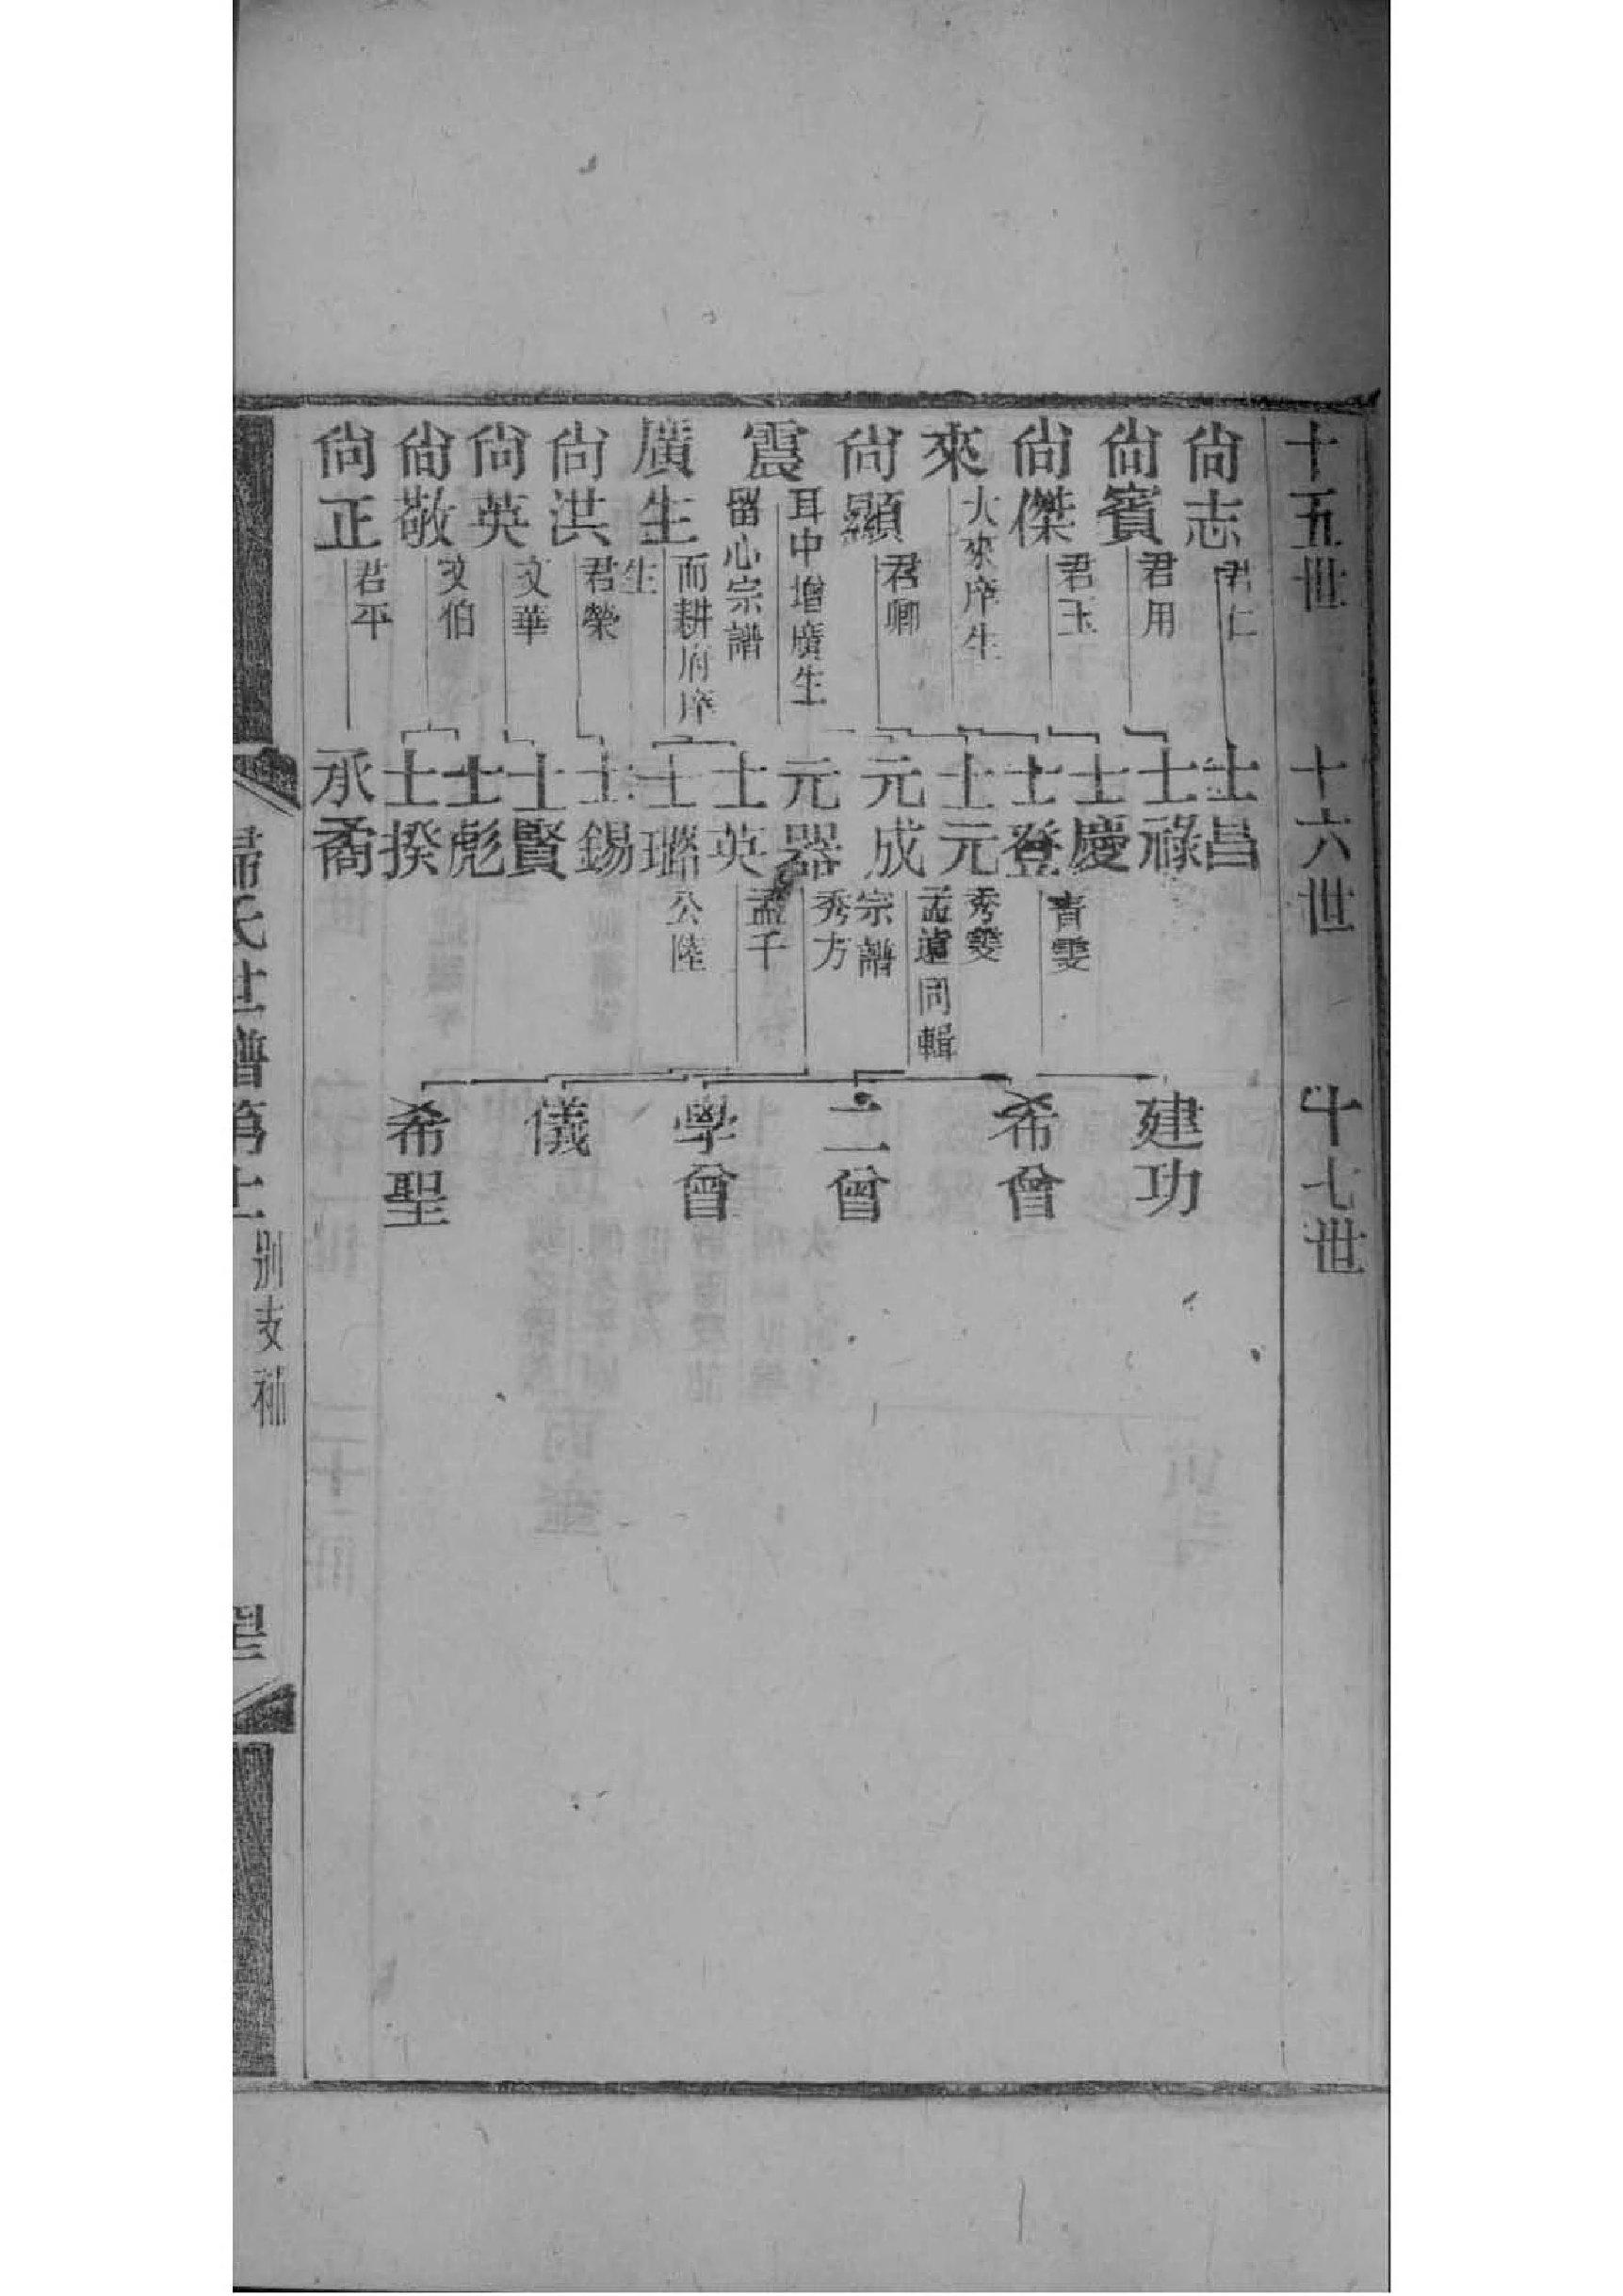 十五世 十六世 十七世
尙志 君仁
尙賓 君用
尙傑 君玉
來 大來庠生
尙顯 君卿
震 耳中增廣生
留心宗譜
廣生 而耕府庠
生
尙洪 君榮
尙英 文華
尙敬 文伯
尙正 君平
士昌
士祿
士慶
士登 青雯
士元 秀雯
元成 孟遠同輯
宗譜
元器 秀方
士英 孟千
士璐 公陸
士錫
士賢
士彪
士揆
承裔
建功
希曾
二曾
學曾
儀
希聖
歸氏世譜第 別支補